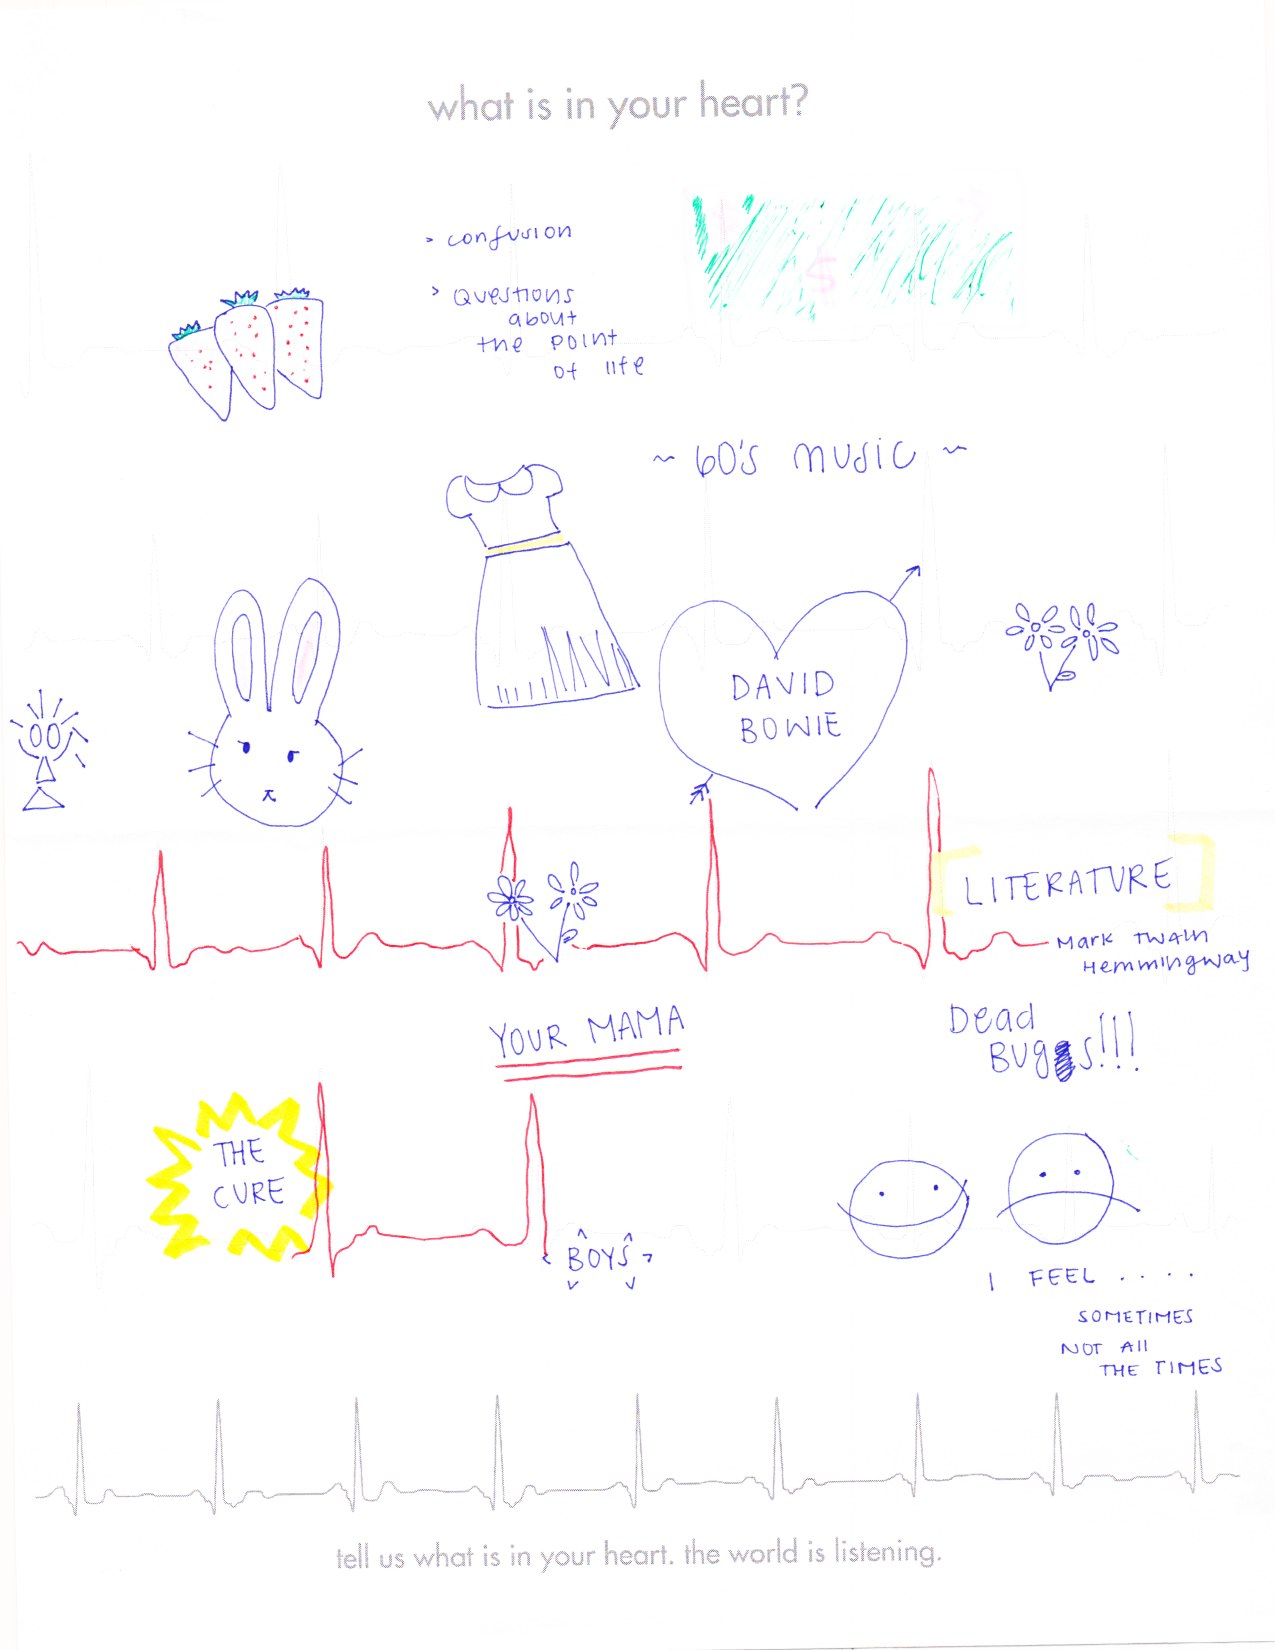 what is in your heart?
> confusion
> Questions
about
the point
of life
$
~ 60's music ~
DAVID
BOWIE
[LITERATURE]
Mark Twain
Hemmingway
YOUR MAMA
Dead
Bugs!!!
THE
CURE
BOYS
I FEEL ....
SOMETIMES
NOT All
THE TIMES
tell us what is in your heart. the world is listening.